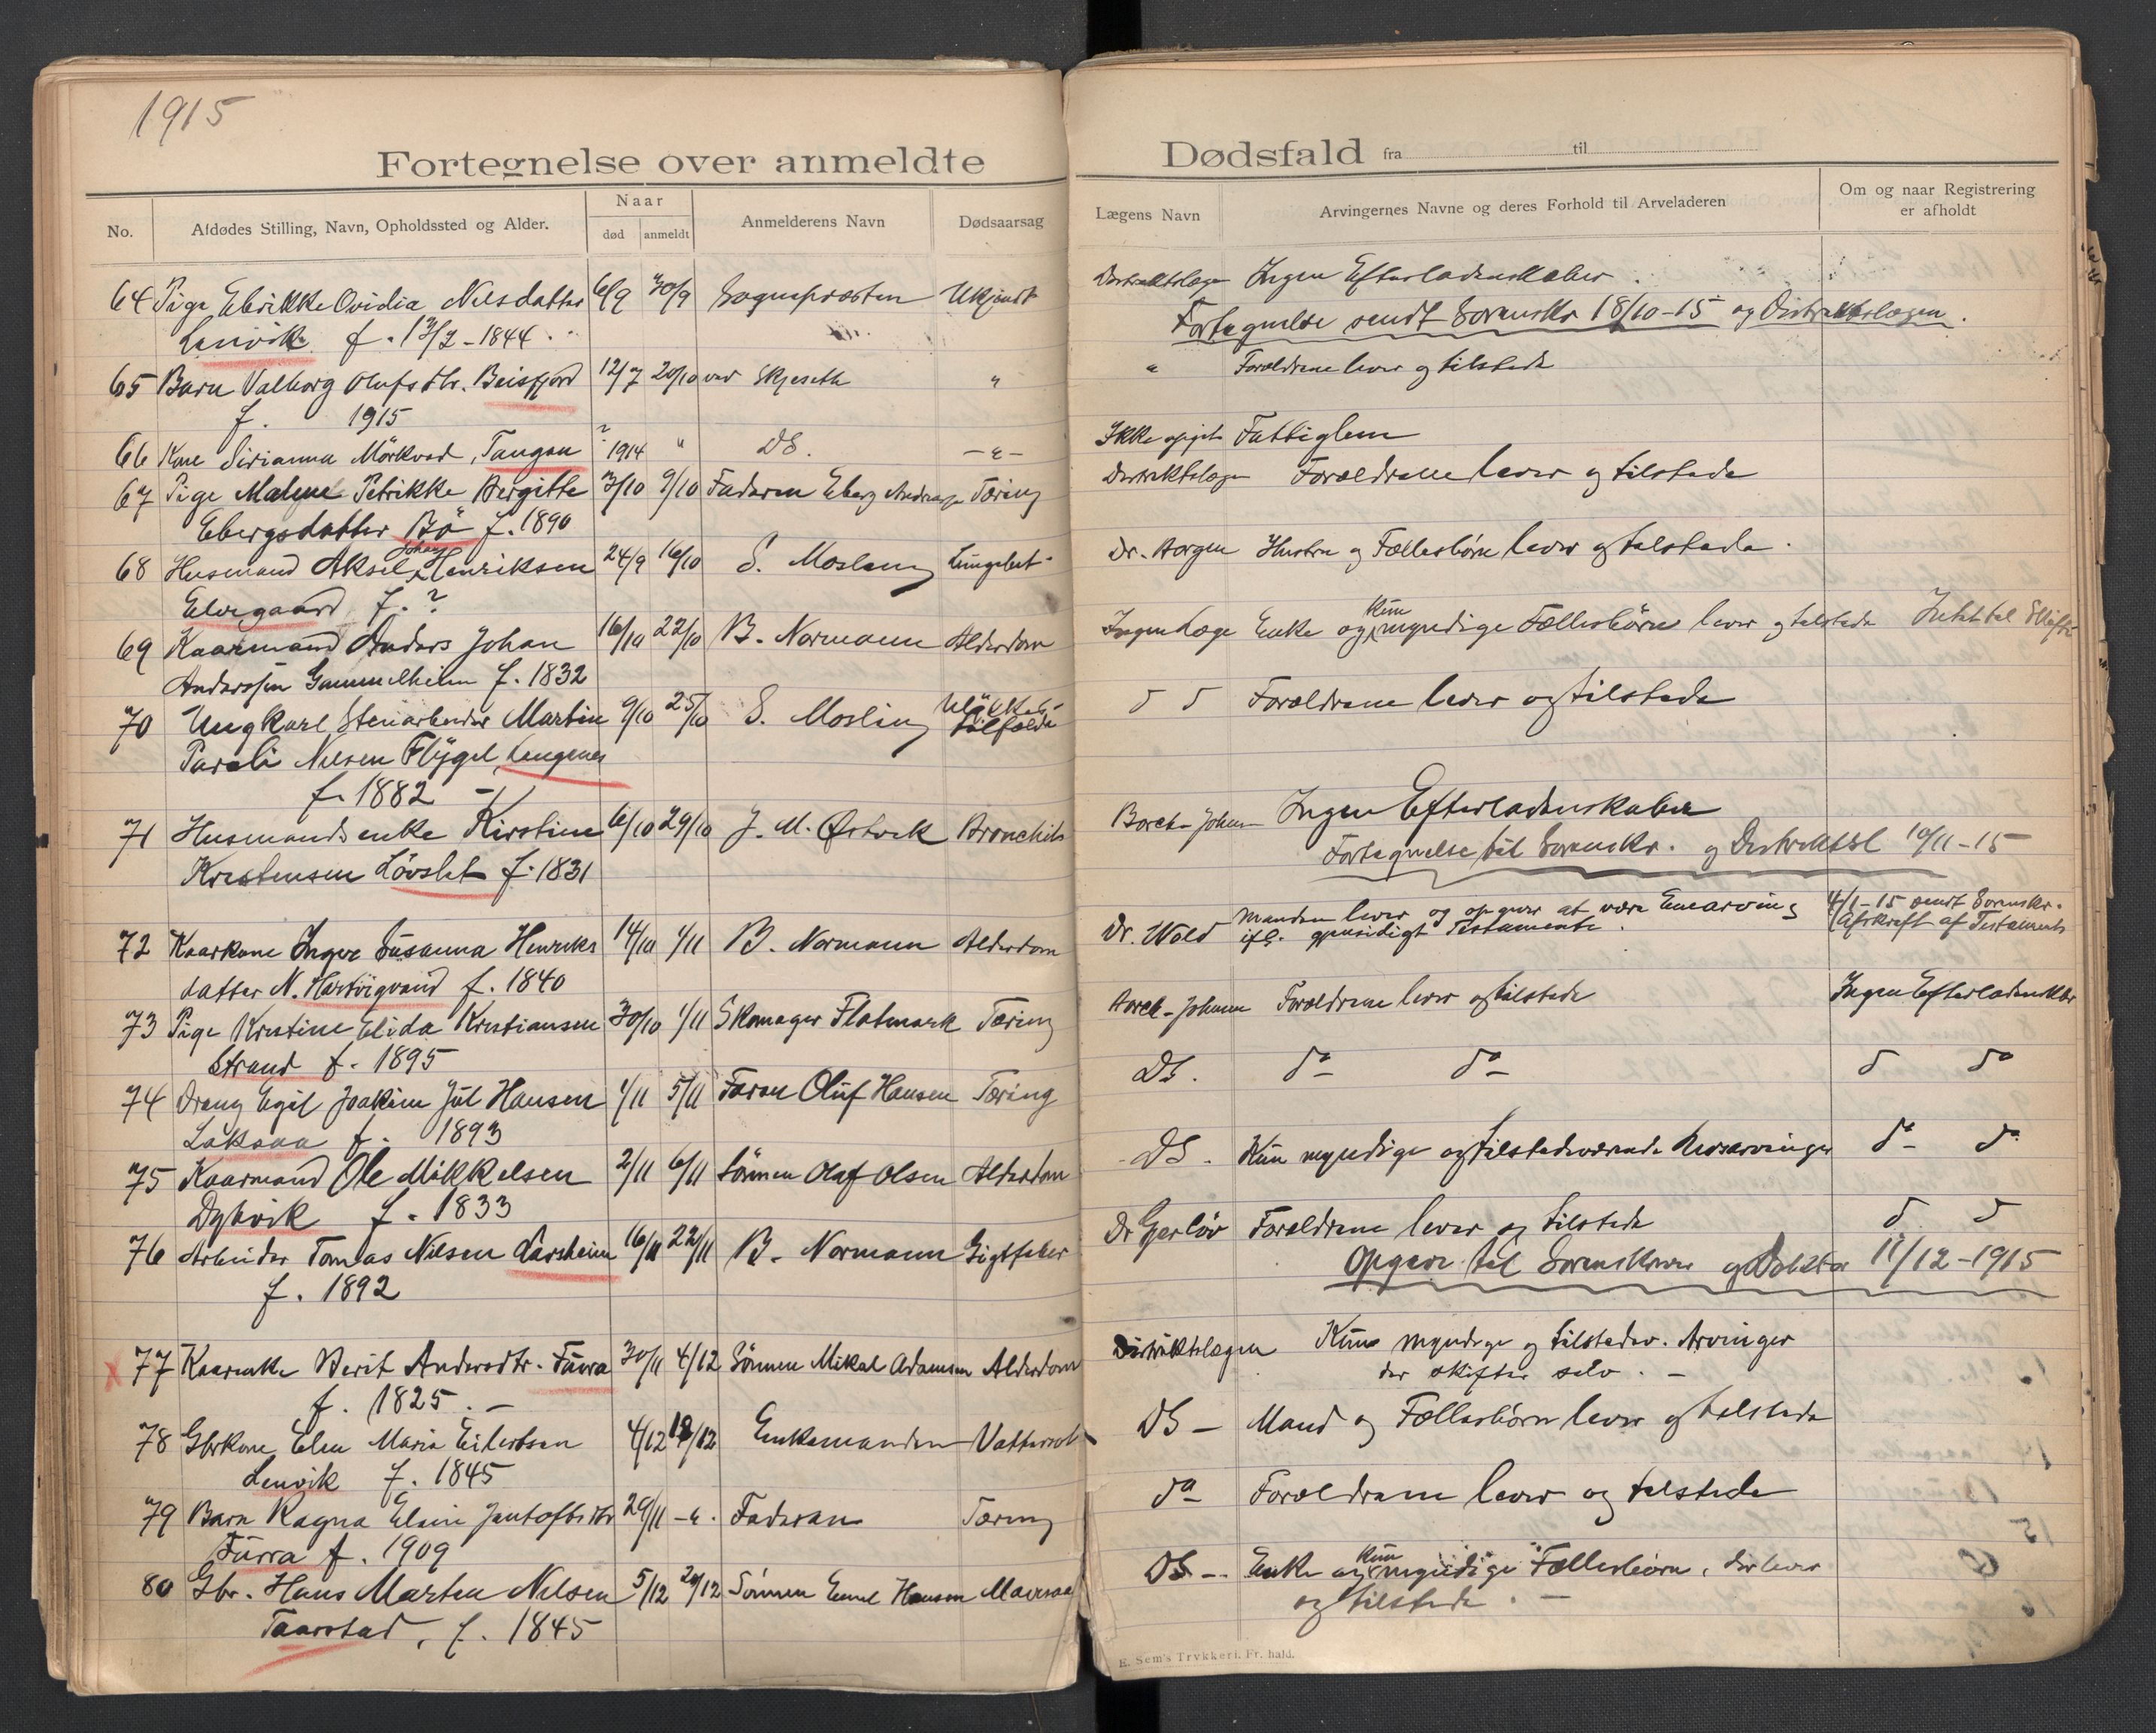 1915
Fortegnelse over anmeldte
Dødsfald fra til
No.
Afdødes Stilling, Navn, Opholdssted og Alder.
Naar
død anmeldt
Anmelderens Navn
Dødsaarsag
Lægens Navn
Arvingernes Navne og deres Forhold til Arveladeren
Om og naar Registrering
er afholdt
64 Pige Ovidia Nilsdatter 6/9 30/9 Sognepræsten Ukjendt
Lenvik f. - 1844
65 Barn Valborg Olufsdtr. Beisfjord 12/7 20/10 Skjeseth "
f. 1915
66 Kone Sirianna Mörkved, Tangen ? 1914 " DS. - " -
67 Pige Malene Petrikke Bergitte 3/10 9/10 Faderen Eberg Tæring
Ebergsdatter Bö f. 1890
68 Husmand Aksel Johan Henriksen 24/9 16/10 S. Mosling
Elvegaard f. ?
69 Kaarmand Anders Johan 16/10 22/10 B. Normann Alderdom
Anderssen Gammelheim f. 1832
70 Ungkarl, Stenarbeider Martin 9/10 25/10 S. Mosling Ulykkes-
tilfælde
Pareli Nilsen Flygel, Lengenes
f. 1882 -
71 Husmandsenke Kirstine 6/10 29/10 J. M. Østvik Bronchit
Kristensen Lövslet f. 1831
72 Kaarkone Inger Susanna Henriks 14/10 4/11 B. Normann Alderdom
datter N. Hartvigvand f. 1840
73 Pige Kristine Elida Kristiansen 30/10 1/11 Skomager Flatmark Tæring
Strand f. 1895
74 Dreng Egil Joakim Jul Hansen 1/11 5/11 Faren Oluf Hansen Tæring
Laksaa f. 1893
75 Kaarmand Ole Mikkelsen 2/11 6/11 Sönnen Olaf Olsen Alderdom
Dybvik f. 1833
76 Arbeider Tomas Nilsen Larsheim 16/11 22/11 B. Normann Gigtfeber
f. 1892
x 77 Kaarenke Berit Andersdtr. Furra 30/11 4/12 Sönnen Mikal Adamsen Alderdom
f. 1825. -
78 Gbrkone Elen Maria Eilertsen 4/12 /12 Enkemanden Vattersot
Lenvik f. 1845
79 Barn Ragna Elsine 29/11 - " - Faderen Tæring
Furra f. 1909
80 Gbr. Hans Martin Nilsen 5/12 20/12 Sönnen Emil Hansen
Taarstad, f. 1845
Distriktslægen Ingen Efterladenskaber
Fortegnelse sendt Sorenskr 18/10-15 og Distriktslægen.
" Forældrene lever og tilstede
Ikke opgit Fattiglem
Distriktslægen Forældrene lever og tilstede
Dr. Borgen Hustru og Fællesbörn lever og tilstede.
Ingen Læge Enke og kun myndige Fællesbörn lever og tilstede
Forældrene lever og tilstede
Borch-Johnsen Ingen Efterladenskaber
Fortegnelse til Sorenskr. og Distriktsl 10/11-15
Dr. Wold Manden lever og opgiver at være Enearving
ifl. gjensidigt Testamente.
4/1-15 sendt Sorenskr.
Afskrift af Testamente
Borch-Johnsen Forældrene lever og tilstede Ingen Efterladenskber
DS. do do do do
DS. Kun myndige og tilstedeværende Livsarvinger do do
Dr Gjerlöv Forældrene lever og tilstede d d
Opgave til Sorenskriver og 11/12-1915
Distriktslægen Kun myndige og tilstedev. Arvinger
der skifter selv. -
DS - Mand og Fællesbörn lever og tilstede
do Forældrene lever og tilstede
DS - Enke og kun myndige Fællesbörn, der lever
og tilstede. -
E. Sem's Trykkeri, Fr. hald.